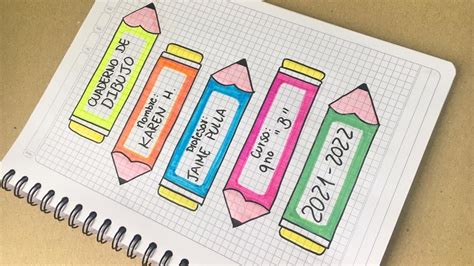 CUADERNO DE
DIBUJO
Nombre:
KAREN H.
Profesor:
JAIME PULLA
Curso:
9no "B"
2021-2022